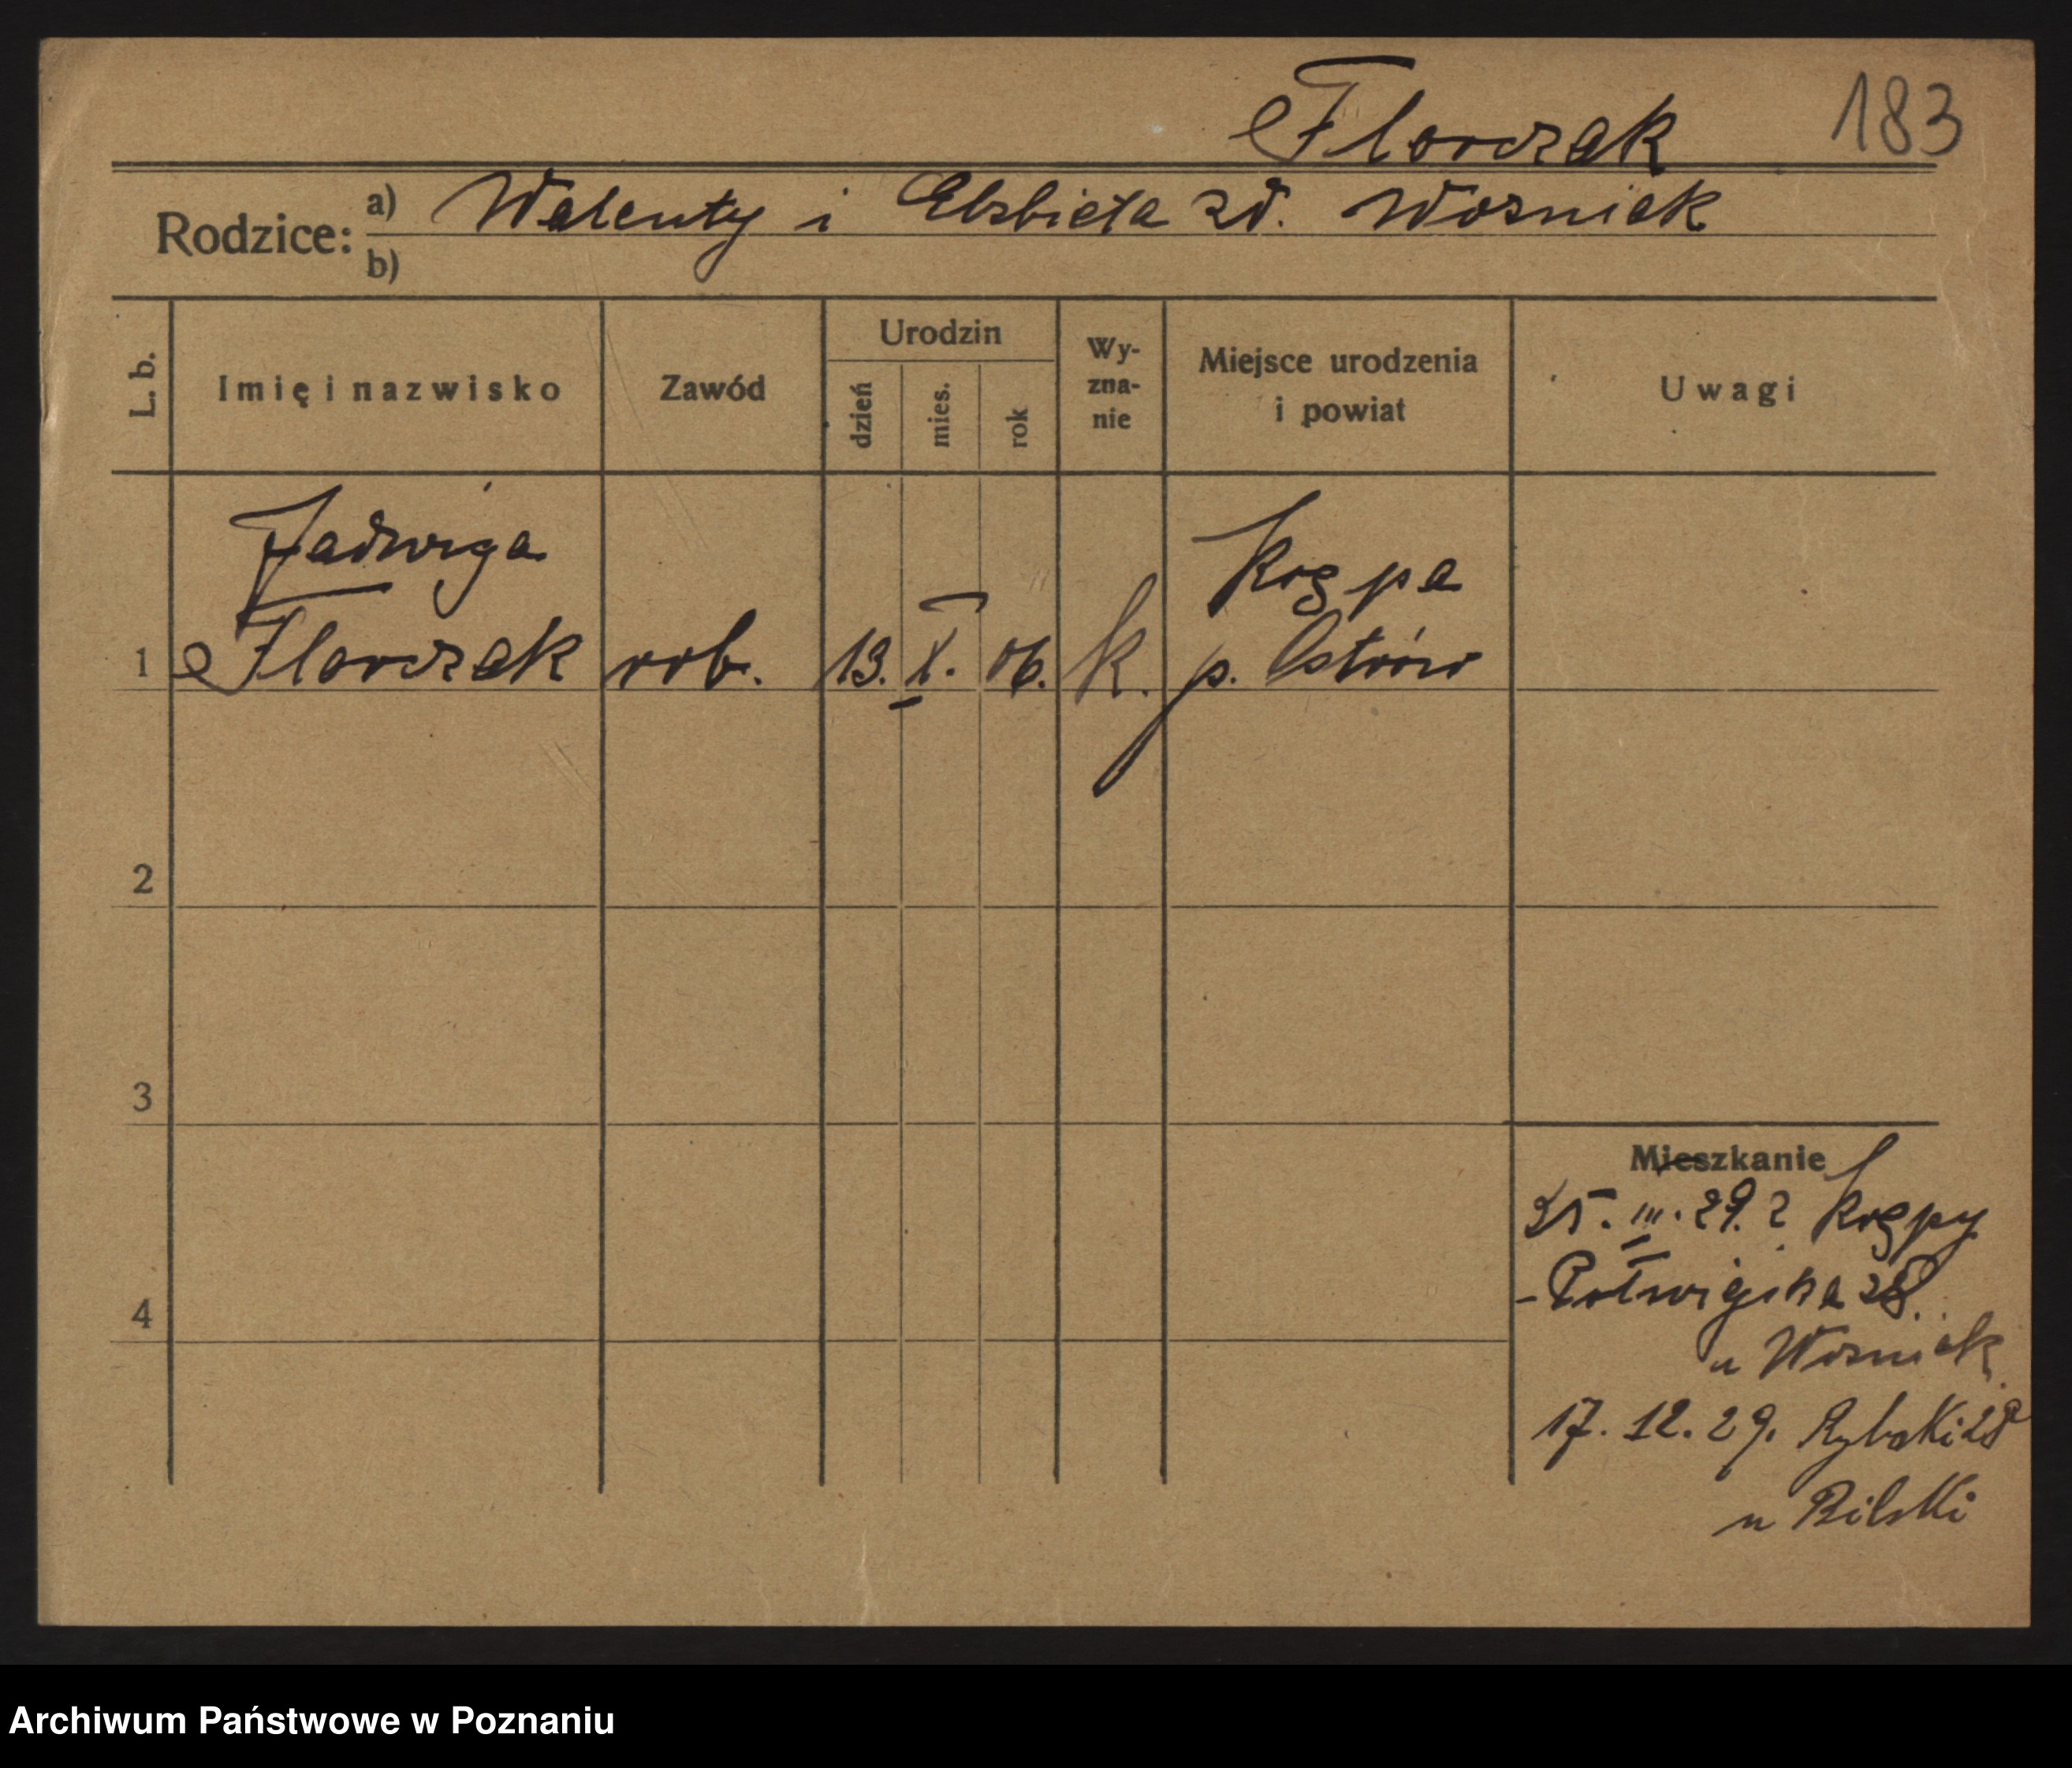 Florczak 183
Rodzice: a) Walenty i Elżbieta zd. Wozniak
b)
L. b. Imię i nazwisko Zawód Urodzin dzień mies. rok Wy- zna- nie Miejsce urodzenia i powiat Uwagi
Jadwiga Krępa
1 Florczak rob. 13. X. 06. k. p. Ostrów
2
3
Mieszkanie
III. 29. z Krępy
4
u Wozniak
17. 12. 29. Rybaki
u Bilski
Archiwum Państwowe w Poznaniu